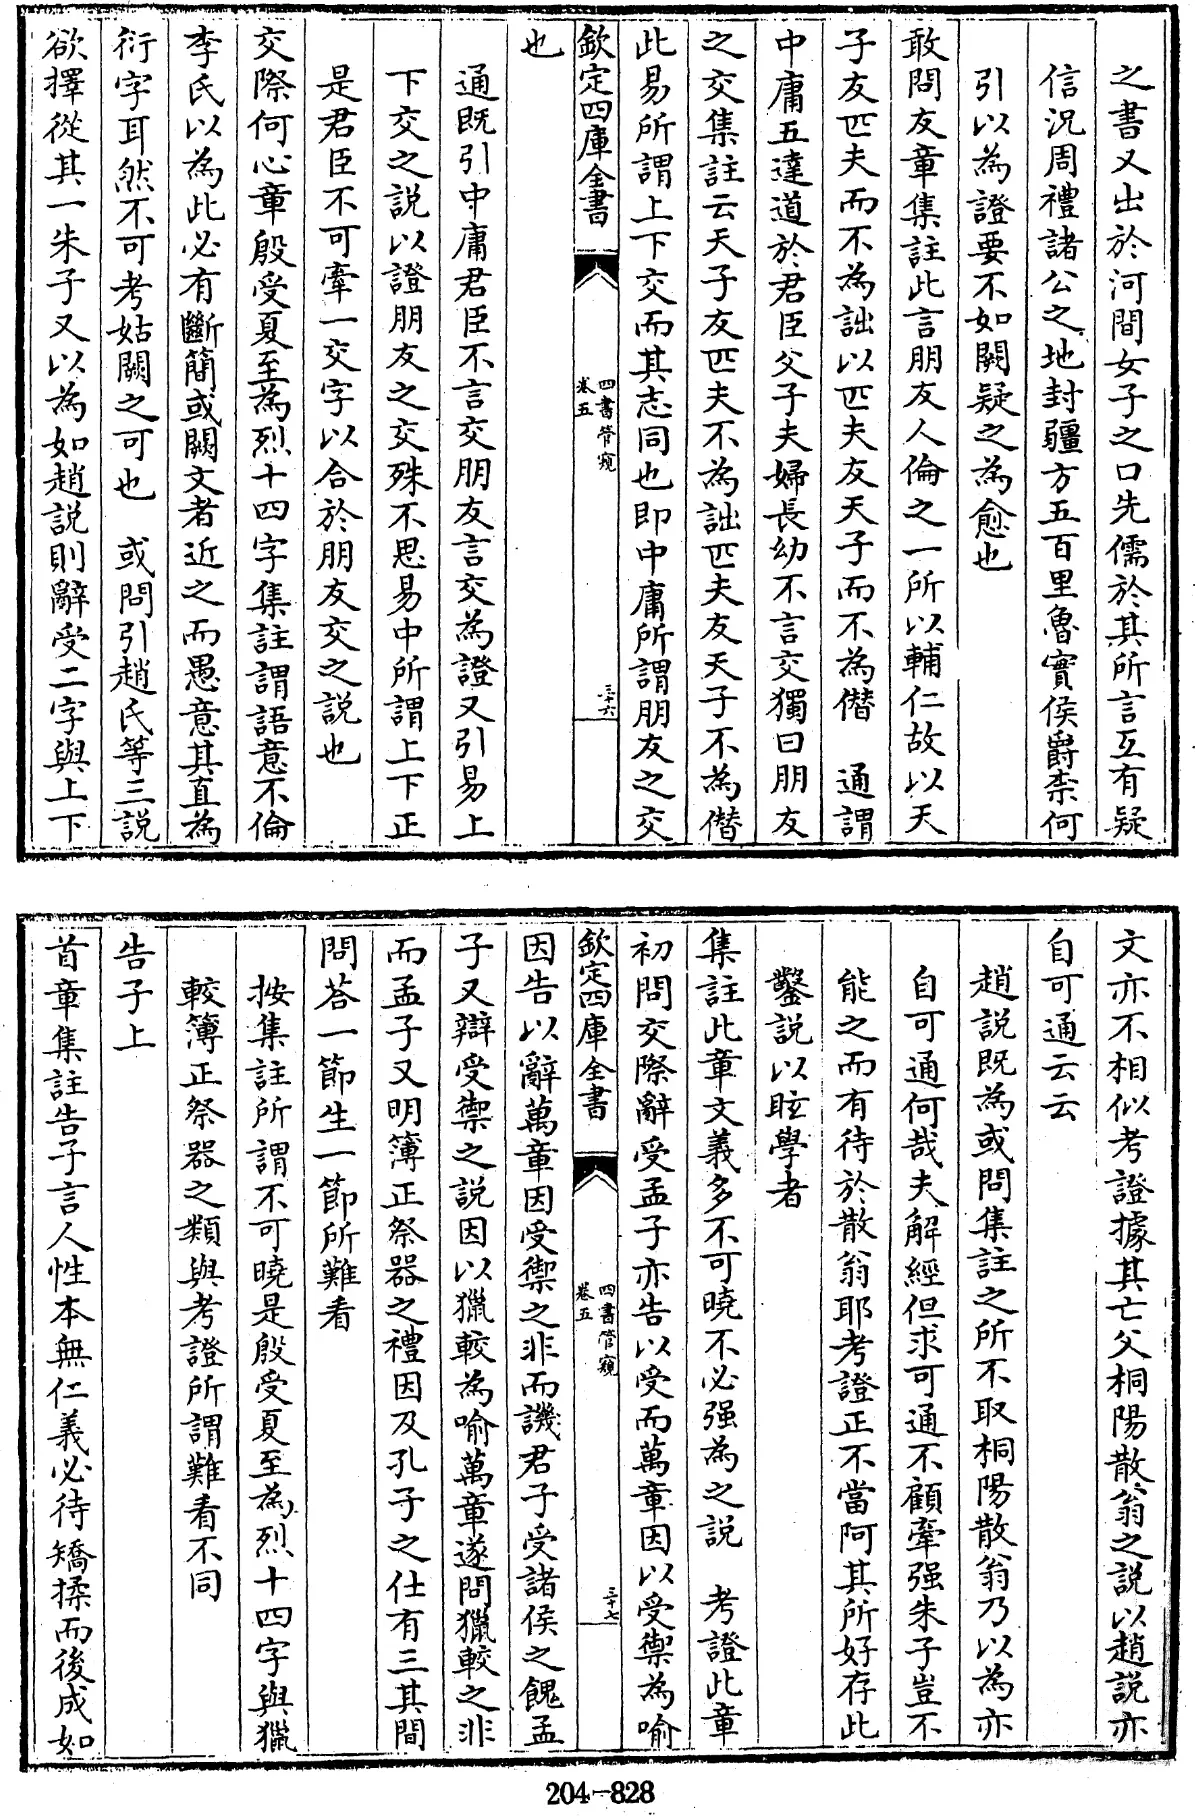 之書又出於河間女子之口先儒於其所言互有疑
信況周禮諸公之地封疆方五百里魯實侯爵柰何
引以為證要不如闕疑之為愈也
敢問友章集註此言朋友人倫之一所以輔仁故以天
子友匹夫而不為詘以匹夫友天子而不為僭　通謂
中庸五達道於君臣父子夫婦長幼不言交獨曰朋友
之交集註云天子友匹夫不為詘匹夫友天子不為僭
此易所謂上下交而其志同也即中庸所謂朋友之交
欽定四庫全書
四書管窺
卷五
三十六
也
通既引中庸君臣不言交朋友言交為證又引易上
下交之説以證朋友之交殊不思易中所謂上下正
是君臣不可牽一交字以合於朋友交之説也
交際何心章殷受夏至為烈十四字集註謂語意不倫
李氏以為此必有斷簡或闕文者近之而愚意其直為
衍字耳然不可考姑闕之可也　或問引趙氏等三説
欲擇從其一朱子又以為如趙説則辭受二字與上下
文亦不相似考證據其亡父桐陽散翁之説以趙説亦
自可通云云
趙説既為或問集註之所不取桐陽散翁乃以為亦
自可通何哉夫解經但求可通不顧牽强朱子豈不
能之而有待於散翁耶考證正不當阿其所好存此
鑿説以眩學者
集註此章文義多不可曉不必强為之説　考證此章
初問交際辭受孟子亦告以受而萬章因以受禦為喻
欽定四庫全書
四書管窺
卷五
三十七
因告以辭萬章因受禦之非而譏君子受諸侯之餽孟
子又辯受禦之説因以獵較為喻萬章遂問獵較之非
而孟子又明簿正祭器之禮因及孔子之仕有三其間
問荅一節生一節所難看
按集註所謂不可曉是殷受夏至為烈十四字與獵
較簿正祭器之類與考證所謂難看不同
告子上
首章集註告子言人性本無仁義必待矯揉而後成如
204-828